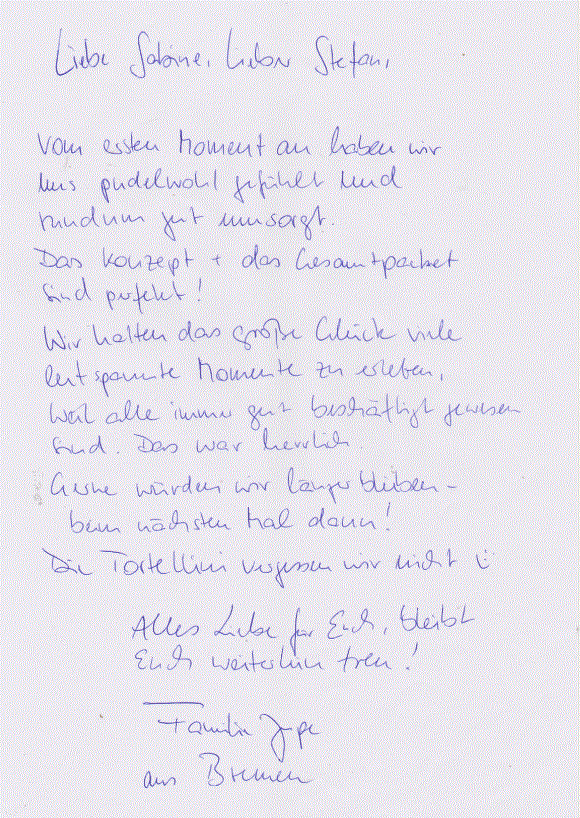 Liebe Sabine, lieber Stefan,
Vom ersten Moment an haben wir
uns pudelwohl gefühlt und
rundum gut umsorgt.
Das Konzept + das Gesamtpaket
sind perfekt!
Wir hatten das große Glück viele
entspannte Momente zu erleben,
weil alle immer gut beschäftigt gewesen
sind. Das war herrlich.
Gerne würden wir länger bleiben –
beim nächsten Mal dann!
Die Tortellini vergessen wir nicht :)
Alles Liebe für Euch, bleibt
Euch weiterhin treu!
Familie
aus Bremen